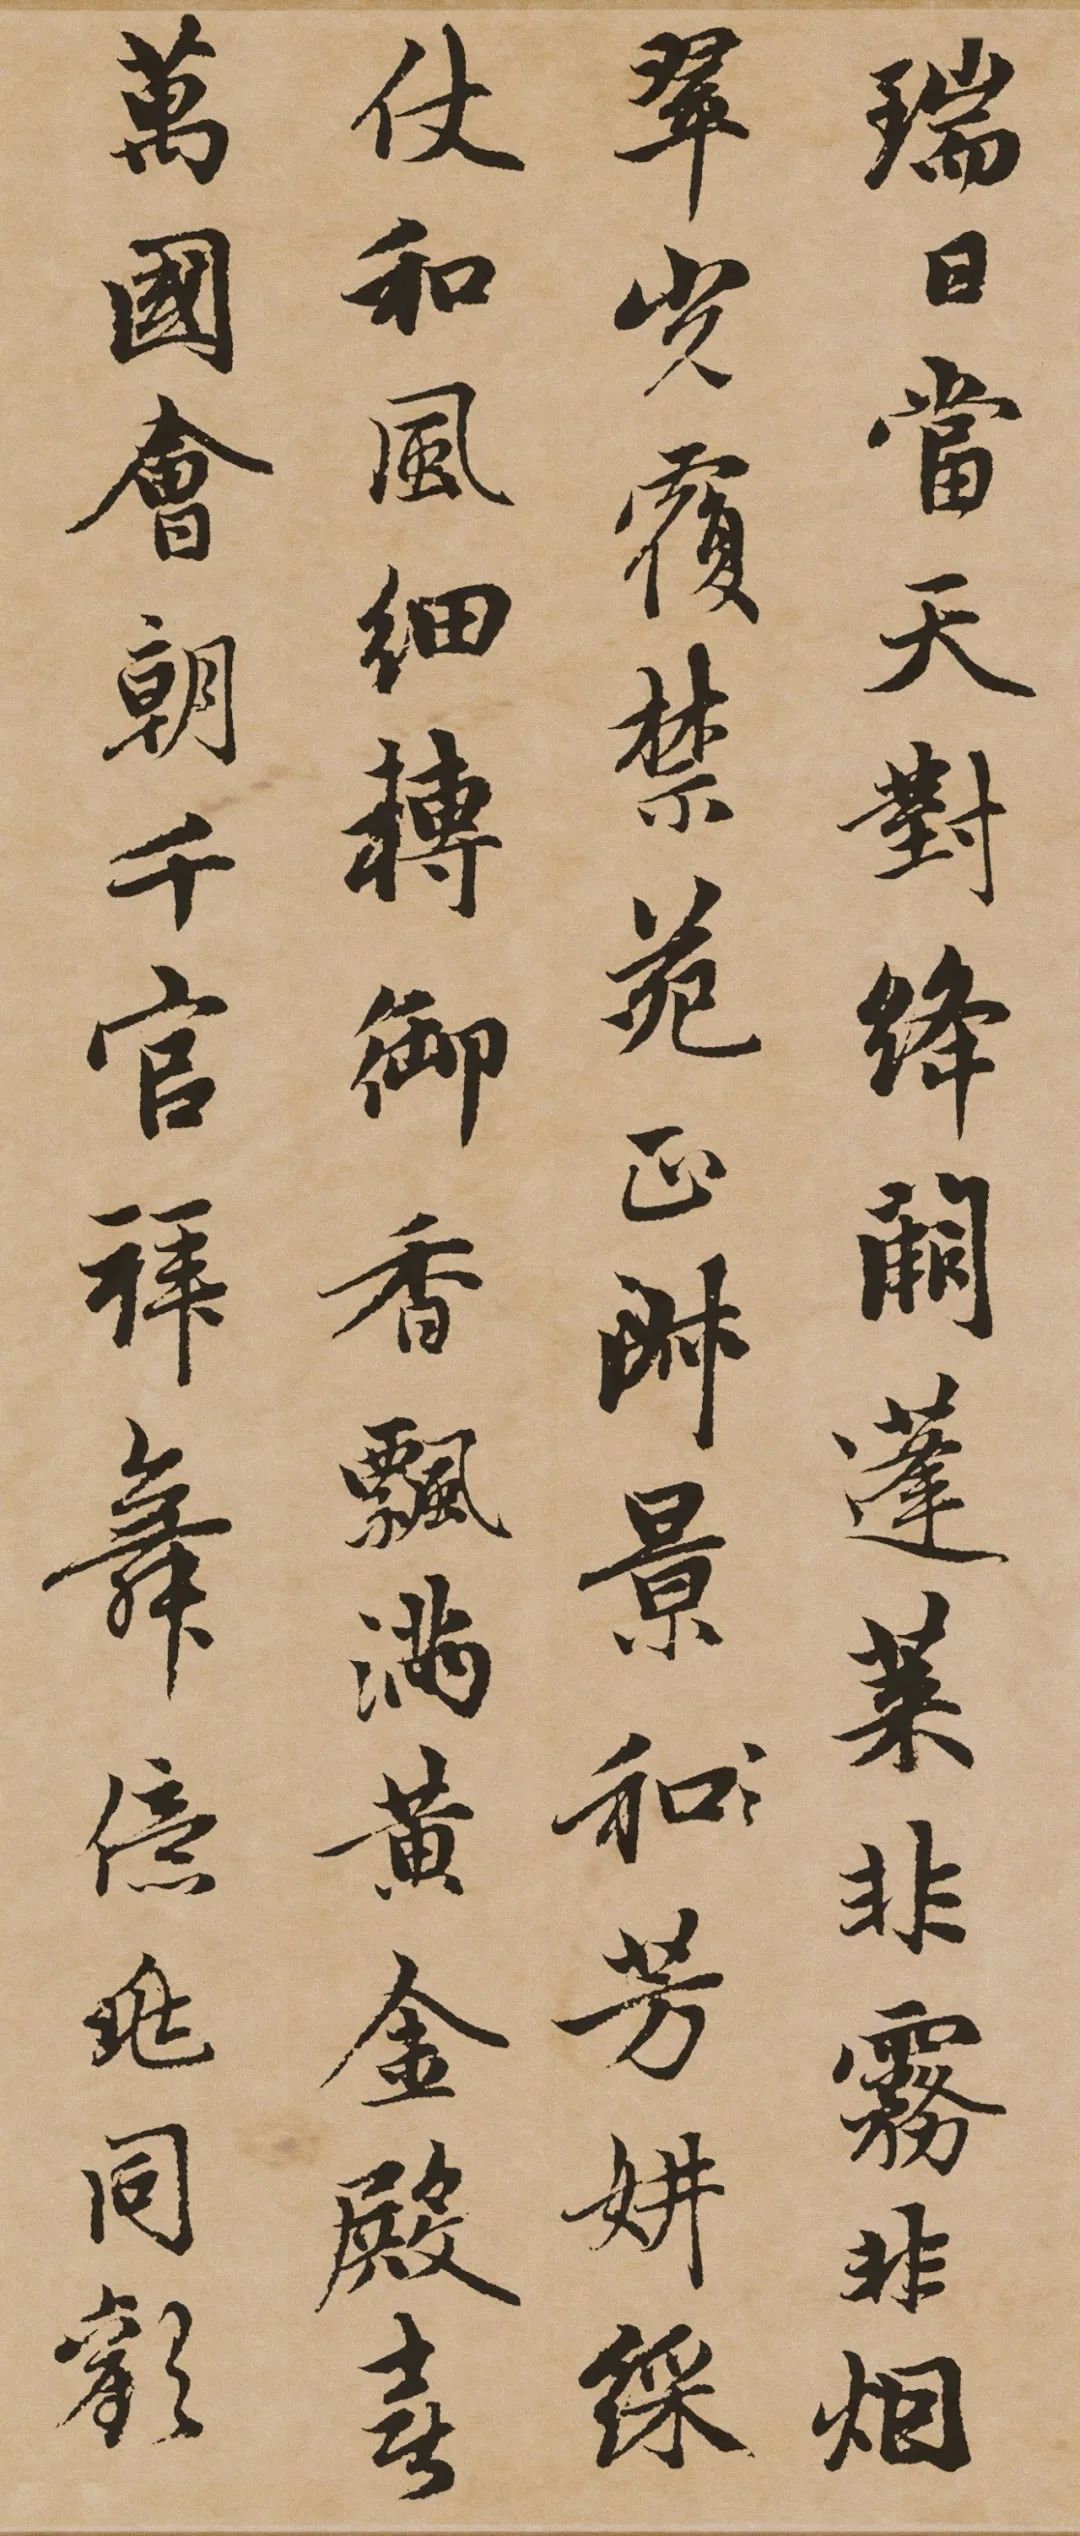 瑞日當天對絳闕蓬萊非霧非烟
翠光覆禁苑正淑景和芳妍綵
仗和風細轉御香飄滿黃金殿喜
萬國會朝千官拜舞億兆同歡